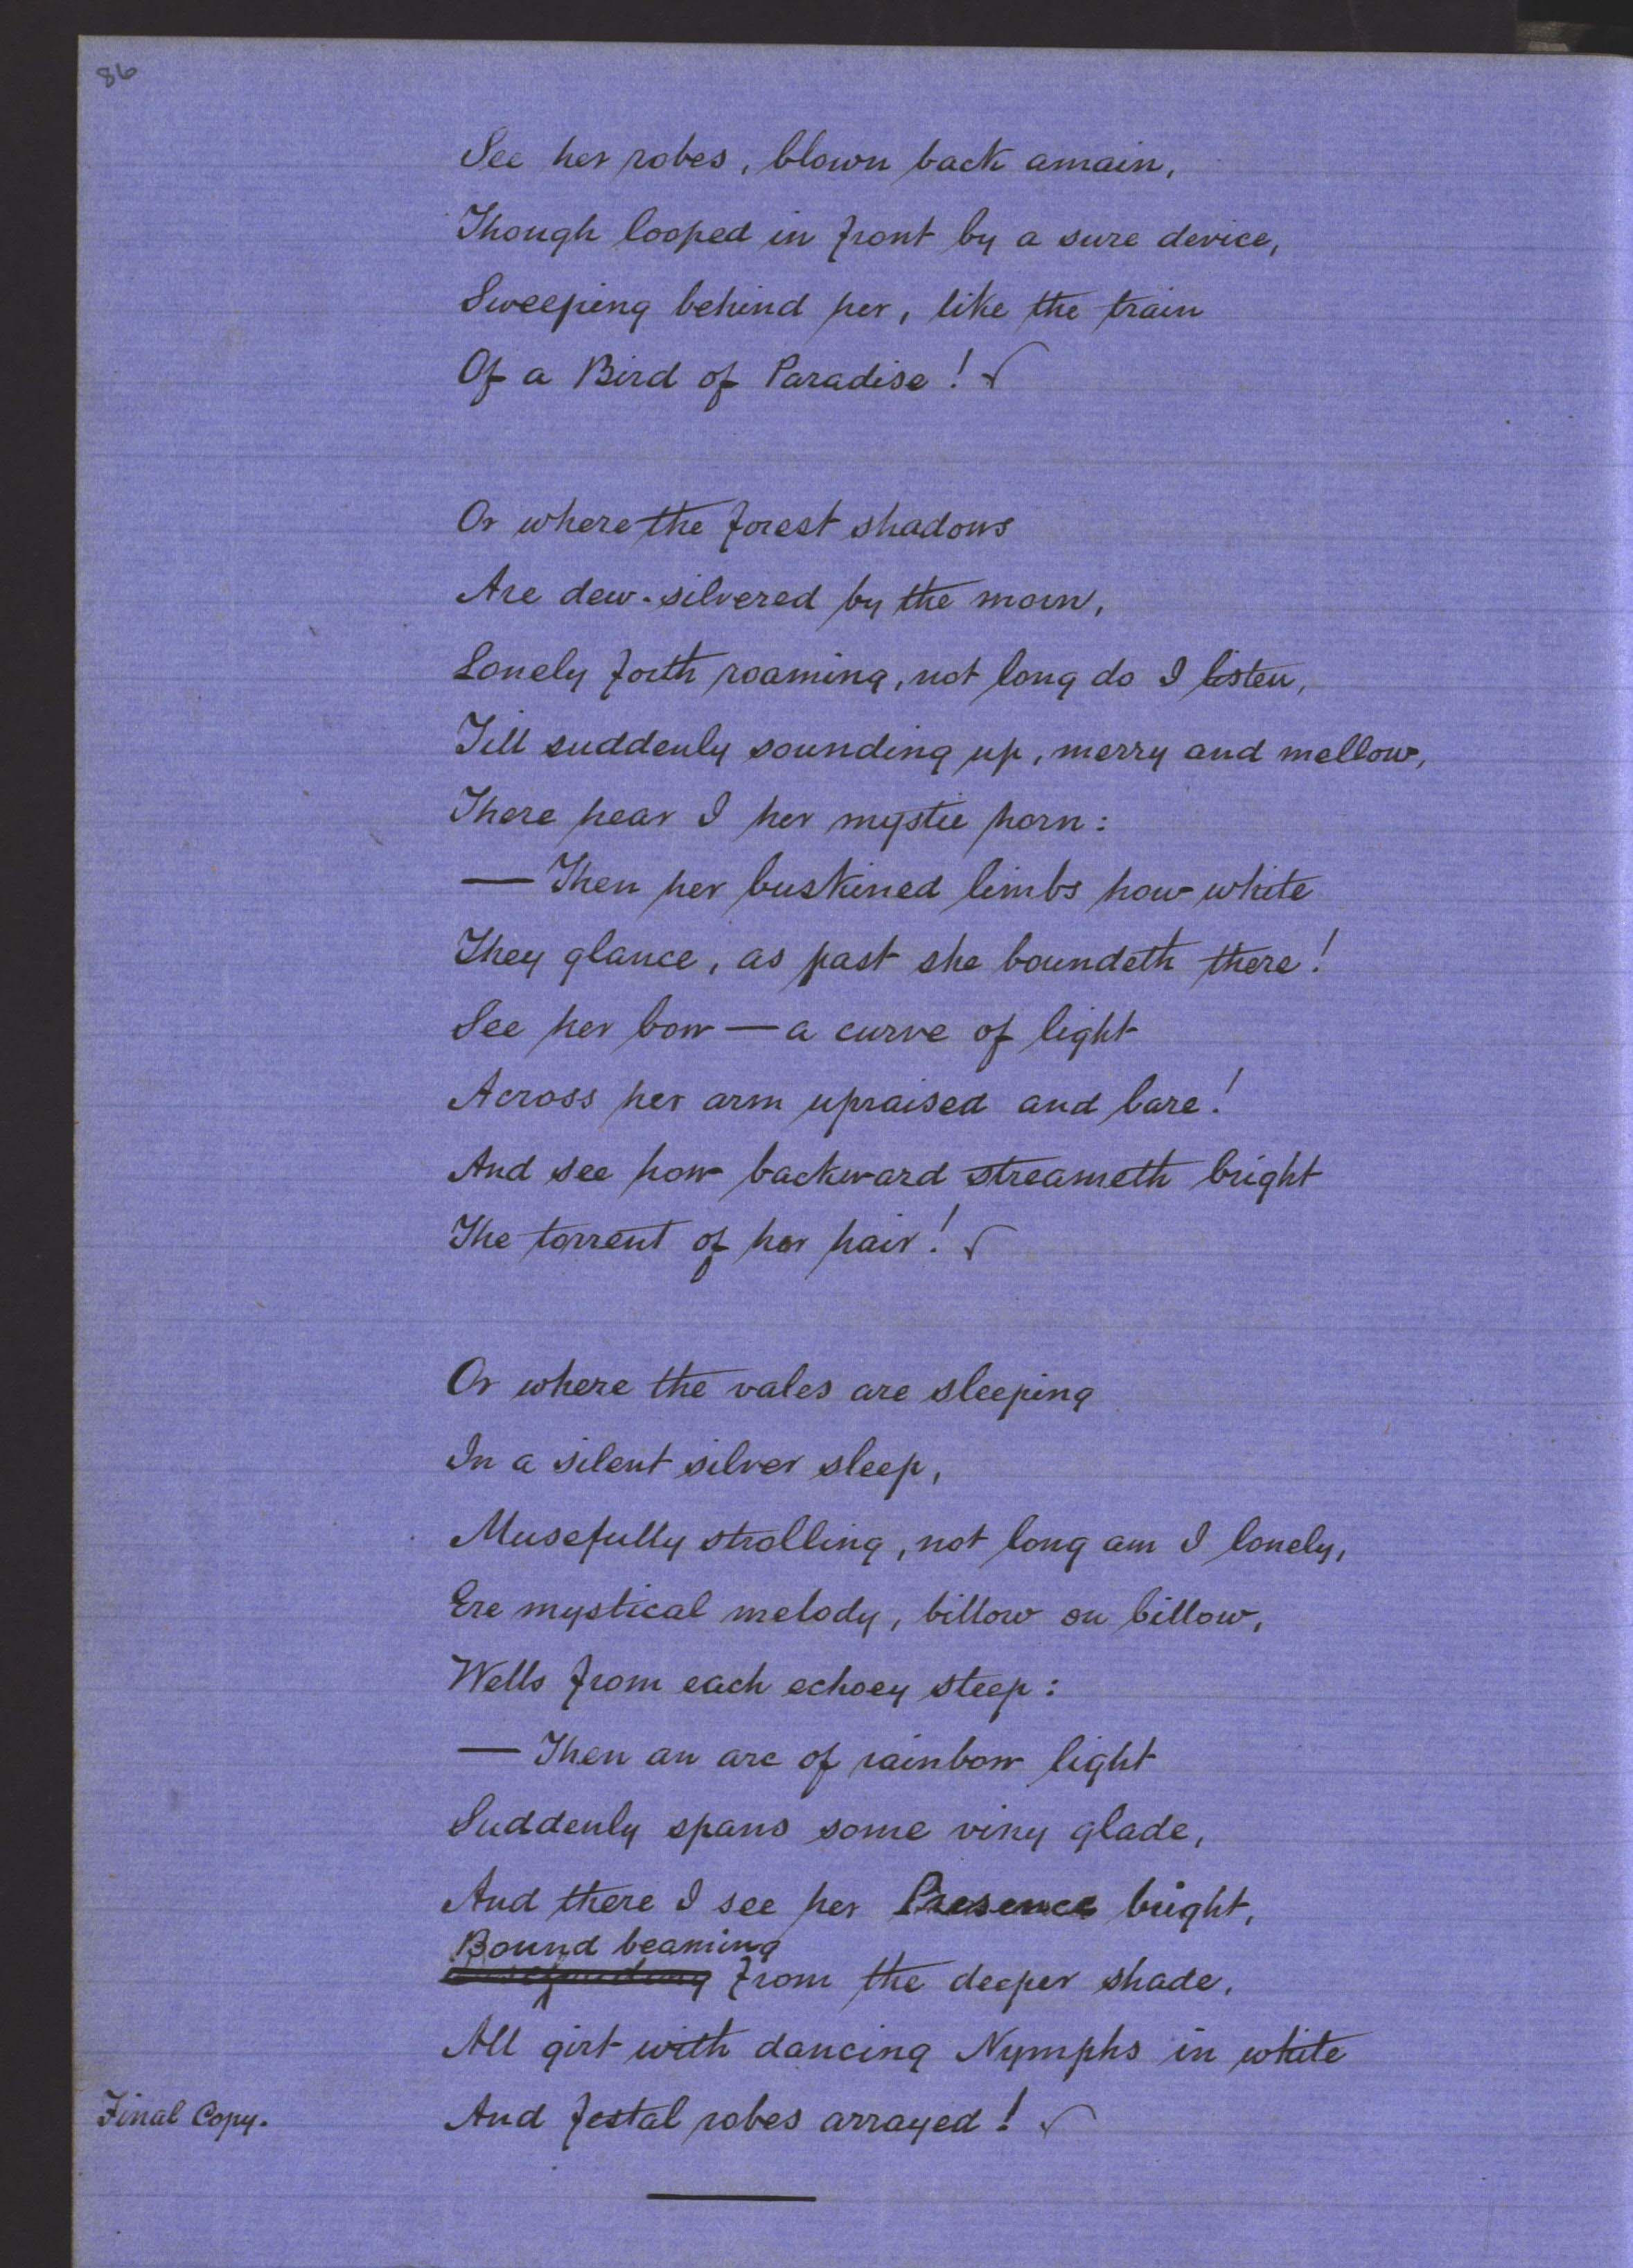 86
See her robes, blown back amain,
Though looped in front by a sure device,
Sweeping behind her, like the train
Of a Bird of Paradise! √
Or where the forest shadows
Are dew-silvered by the morn,
Lonely forth roaming, not long do I listen,
Till suddenly sounding up, merry and mellow,
There hear I her mystic horn:
— Then her buskined limbs how white
They glance, as past she boundeth there!
See her bow — a curve of light
Across her arm upraised and bare!
And see how backward streameth bright
The torrent of her hair! √
Or where the vales are sleeping
In a silent silver sleep,
Musefully strolling, not long am I lonely,
Ere mystical melody, billow on billow,
Wells from each echoey steep:
— Then an arc of rainbow light
Suddenly spans some viny glade,
And there I see her Presence bright,
Bound beaming
from the deeper shade,
All girt with dancing Nymphs in white
Final Copy.
And festal robes arrayed! √